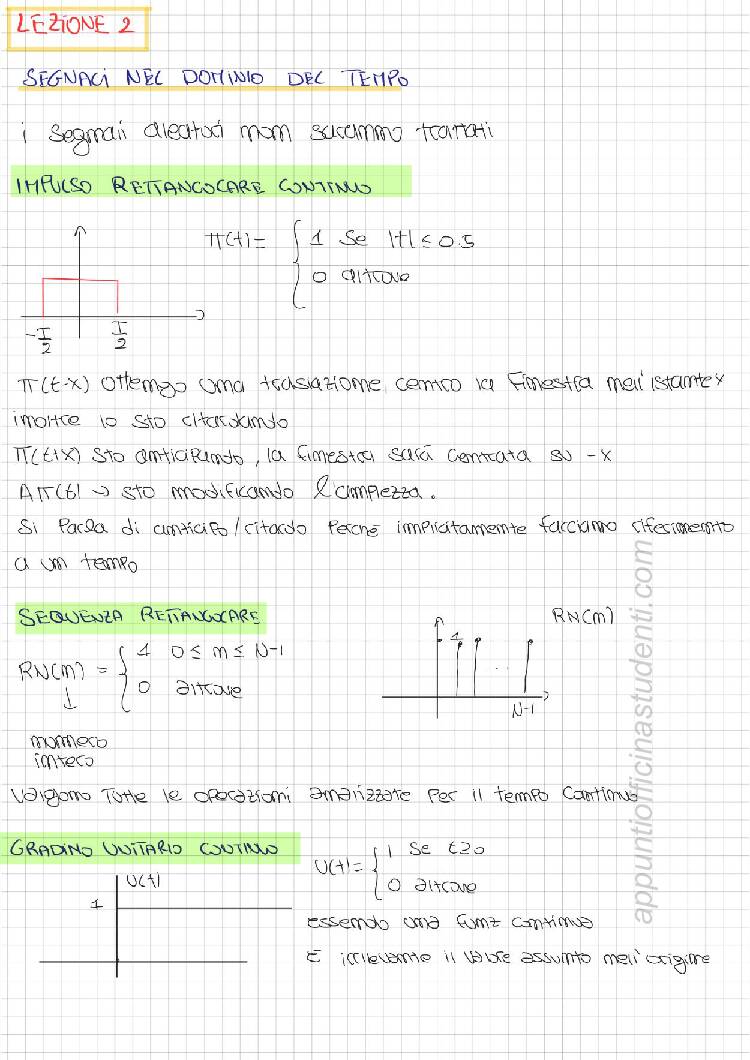 LEZIONE 2
SEGNALI NEL DOMINIO DEL TEMPO
i segnali aleatori non saranno trattati
IMPULSO RETTANGOLARE CONTINUO
π(t) = { 1 se |t| ≤ 0.5
0 altrove
-T/2 T/2
π(t-x) ottengo una traslazione, centro la finestra nell'istante x
inoltre lo sto ritardando
π(t+x) sto anticipando, la finestra sarà centrata su -x
Aπ(t) → sto modificando l'ampiezza.
Si parla di anticipo/ritardo perché implicitamente facciamo riferimento
a un tempo
SEQUENZA RETTANGOLARE
RN(n)
RN(n) = { 1 0 ≤ n ≤ N-1
0 altrove
↓
numero
intero
1
...
N-1
Valgono tutte le operazioni analizzate per il tempo continuo
GRADINO UNITARIO CONTINUO
U(t) = { 1 se t≥0
0 altrove
U(t)
1
essendo una funz continua
È irrilevante il valore assunto nell'origine
appuntiofficinastudenti.com